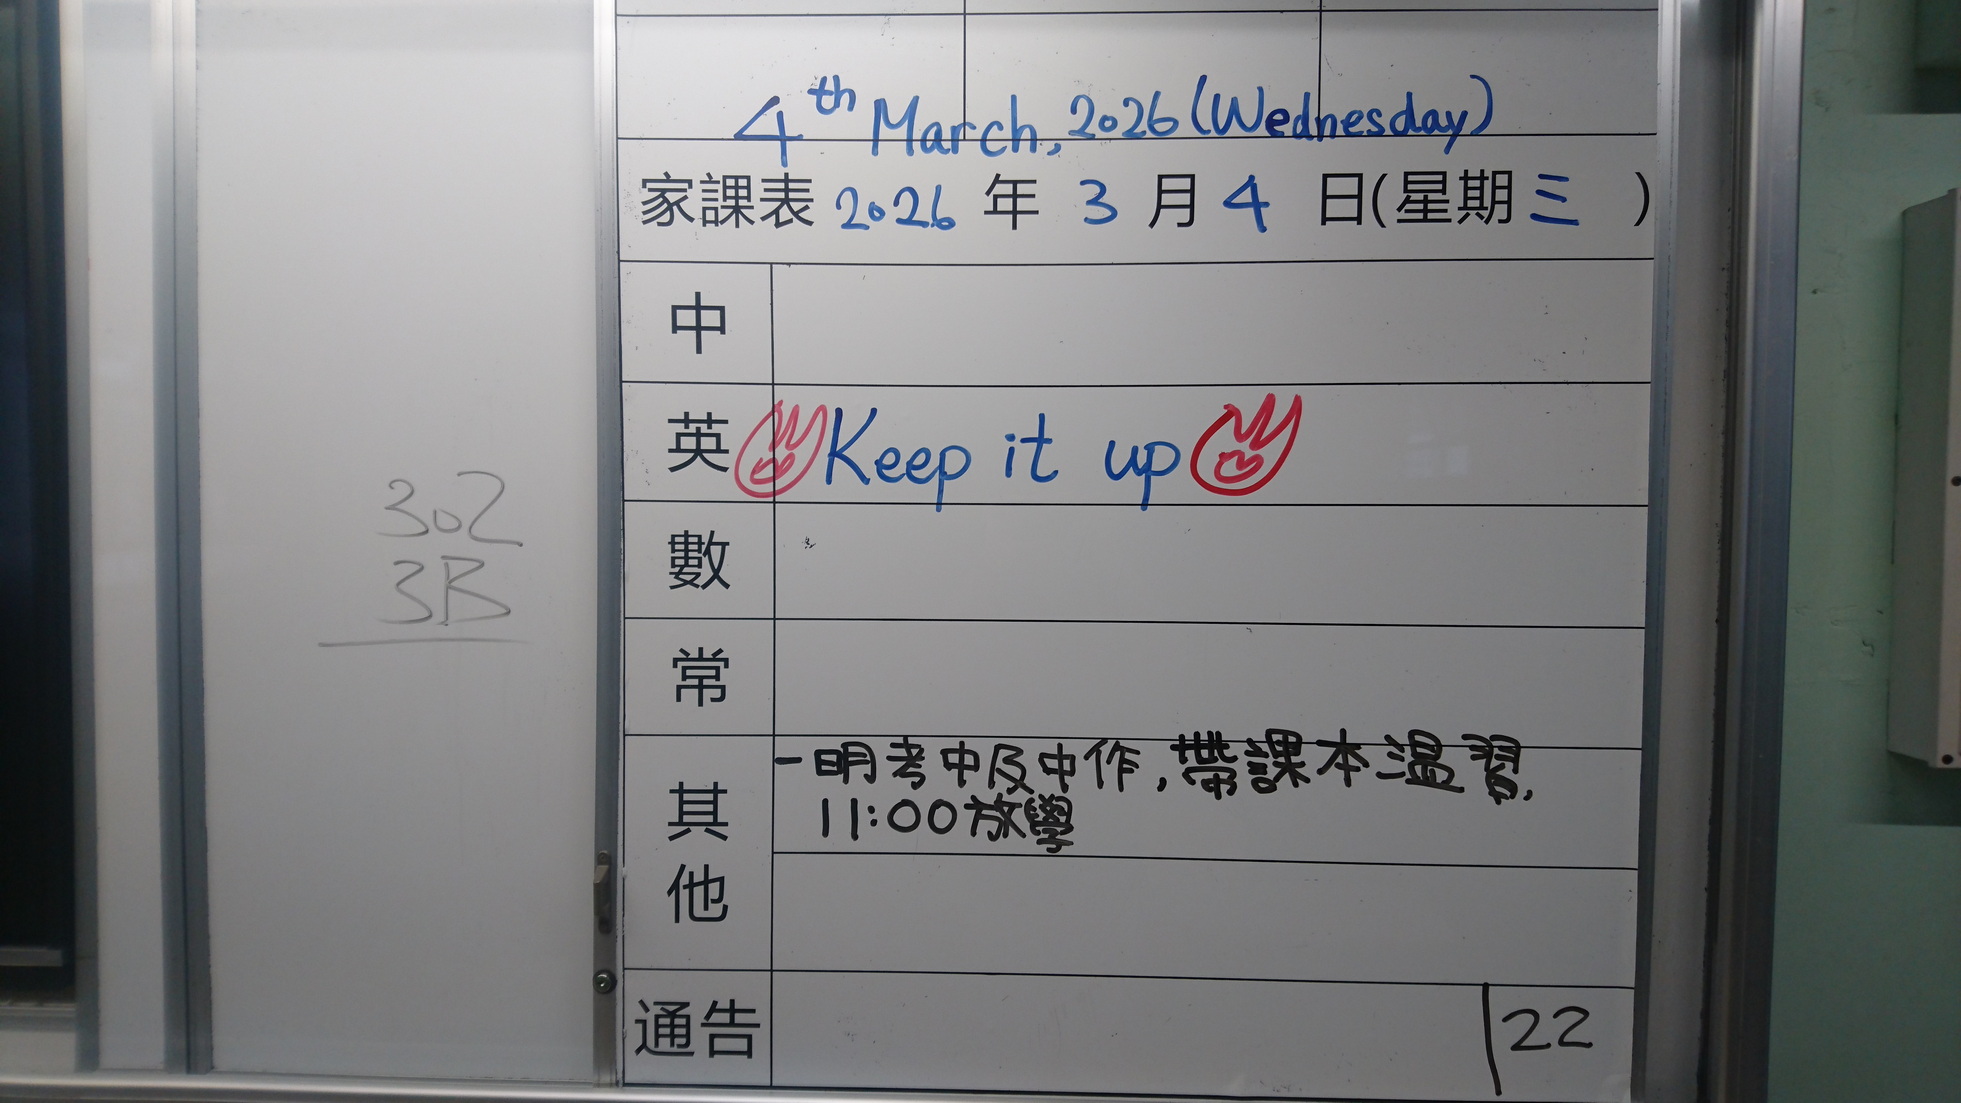 4th March, 2026 (Wednesday)
家課表 2026 年 3 月 4 日(星期三 )
中
英 Keep it up
數
常
其他
-明考中及中作,帶課本溫習,
11:00放學
通告 |22
302
3B